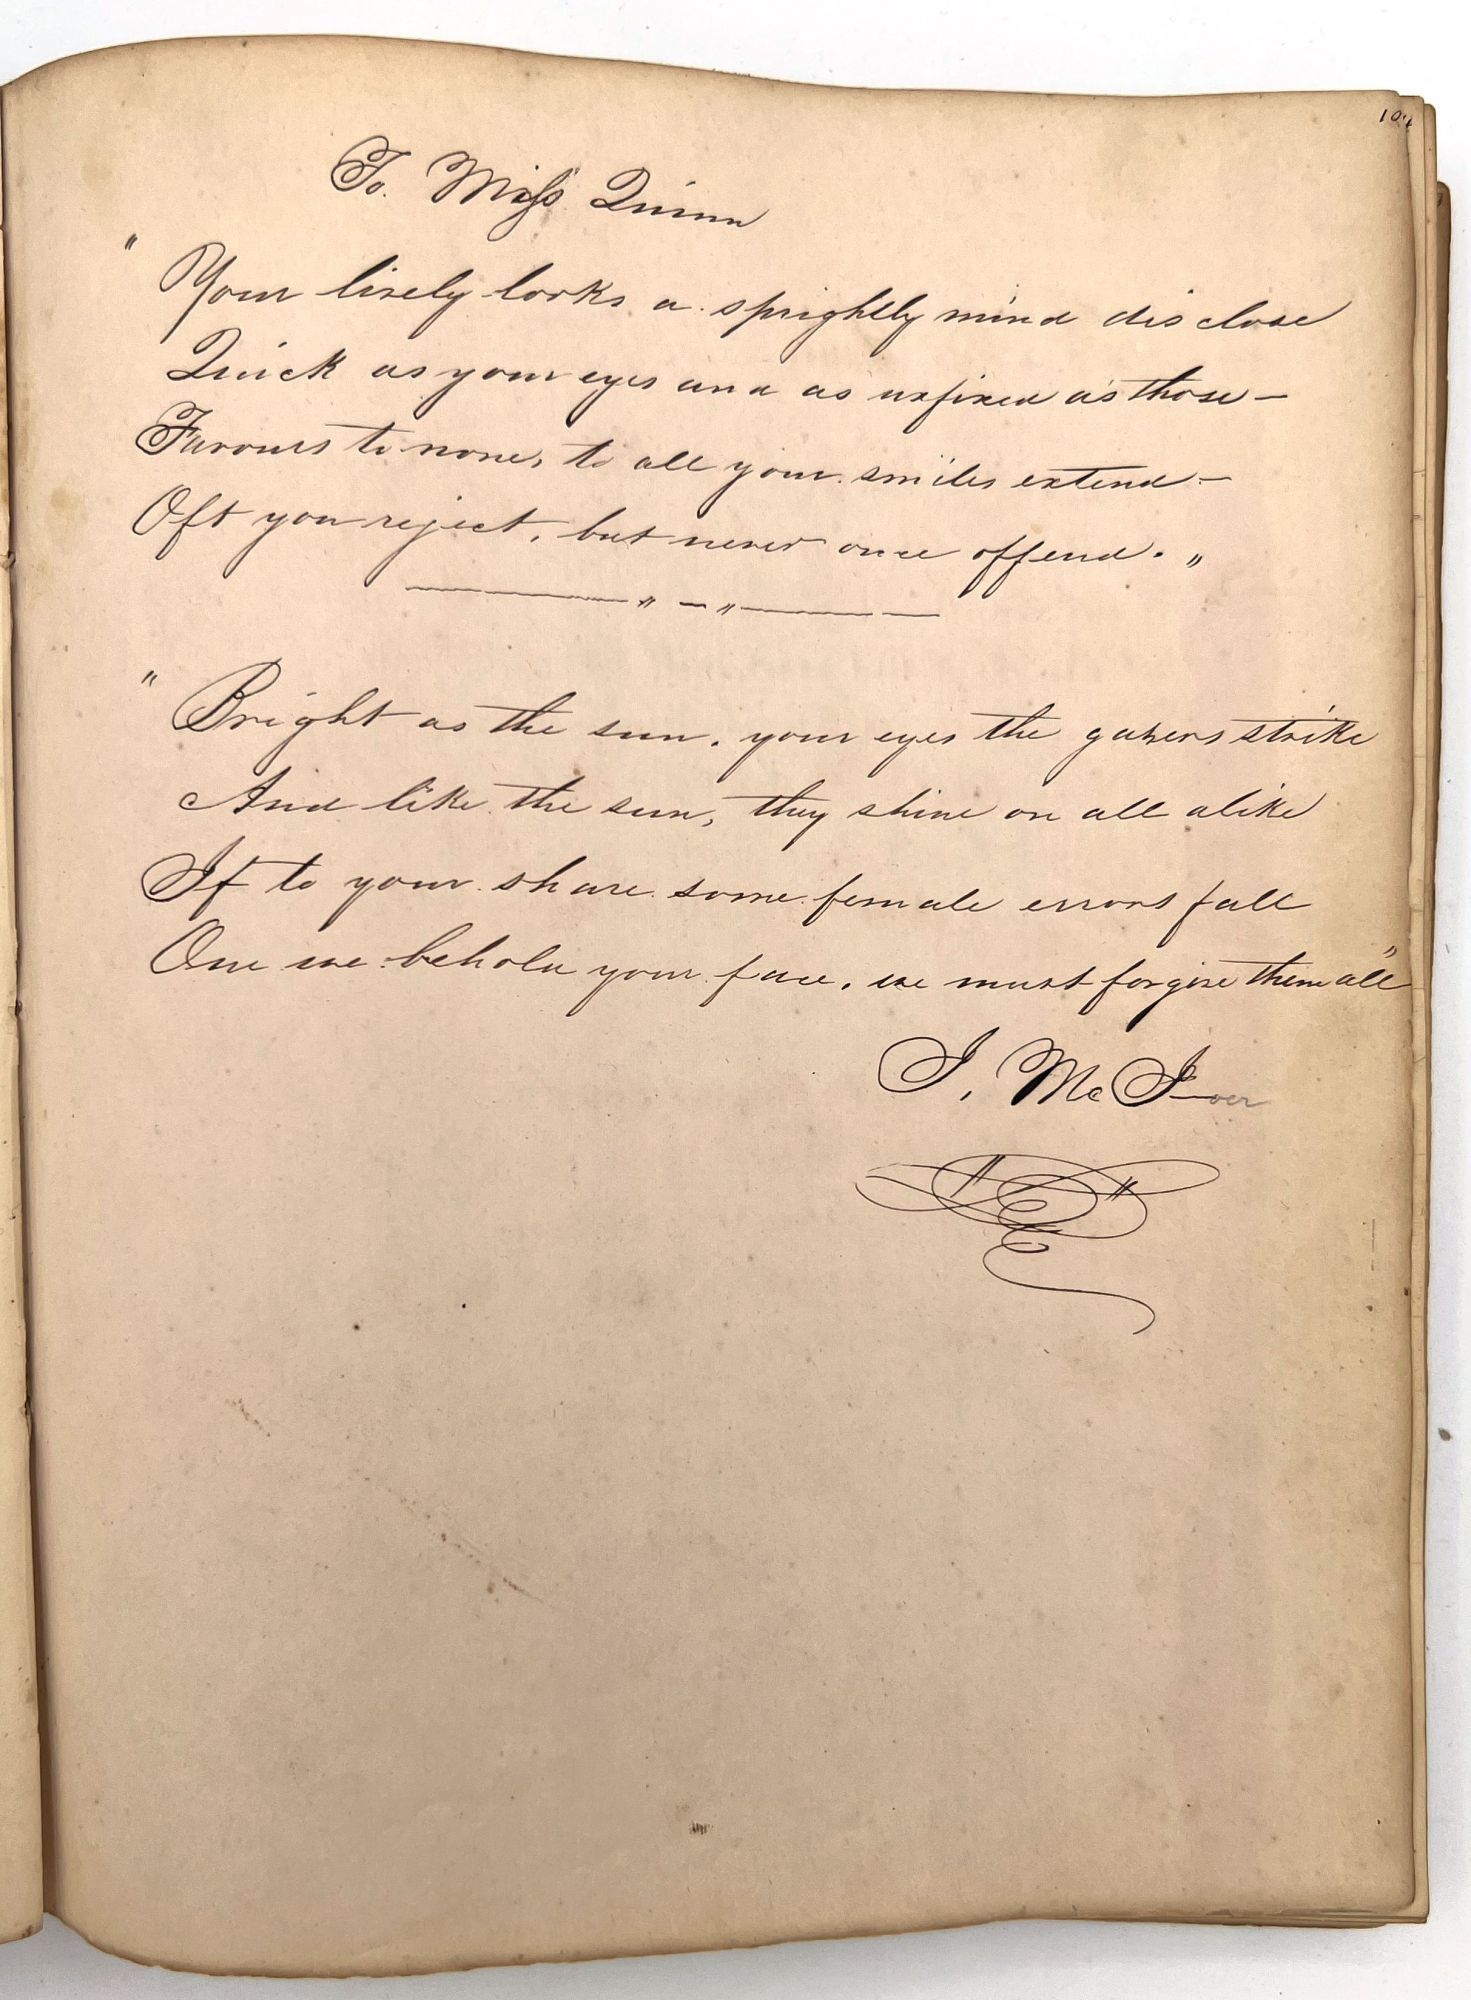 104
To. Miss Quinn
" Your lively looks a sprightly mind disclose
Quick as your eyes and as unfixed as those —
Favours to none, to all your smiles extend —
Oft you reject, but never once offend. "
" — "
" Bright as the sun, your eyes the gazers strike
And like the sun, they shine on all alike
If to your share some female errors fall
One we behold your face, we must forgive them all"
J. McIver